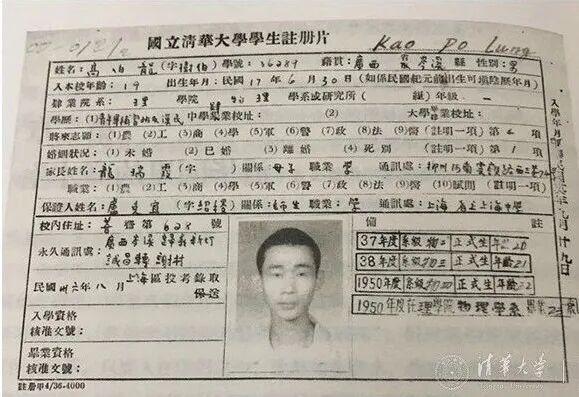 國立清華大學學生註冊片
Kao Po Lung
姓名：高伯龍(字樹伯)學號：36289 籍貫：廣西省岑溪縣 性別：男
入本校年齡：19 出生年月：民國17年6月30日(如係民國紀元前出生可填陰歷年月)
肄業院系：理 學院 物理 學系或研究所( 組)年級：
學歷：(1) 中學畢業校址： (2) 大學畢業校址：
將來志願：(1)農 (2)工 (3)商 (4)學 (5)軍 (6)醫 (7)政 (8)法 (9)警 (註明一項)第4項
婚姻狀況：(1)未婚 (2)已婚 (3)離婚 (4)死別 (註明一項)第1項
家長姓名：龍瑞霞(字 ) 關係：母子 職業：學 通訊處：柳州河南
職業：(1)農 (2)工 (3)商 (4)學 (5)軍 (6)醫 (7)政 (8)法 (9)警 (10)賦閒 (註明一項)
保證人姓名：盧 宜(字紹 ) 關係：師生 職業：學 通訊處：上海省立上海中學
校內住址：善齋628號
永久通訊處：廣西岑溪歸義新圩
誠昌轉謝村
民國卅六年八月上海區投考錄取
保送
入學資格
核准文號：
畢業資格
核准文號：
註冊甲4/36-4000
備 註
37年度系級物二正式生年齡20
38年度系級物三正式生年齡21
1950年度系級物四正式生年齡22
1950年度在理學院物理學系畢業
入學年月
年九月廿九日
清華大學
Tsinghua University